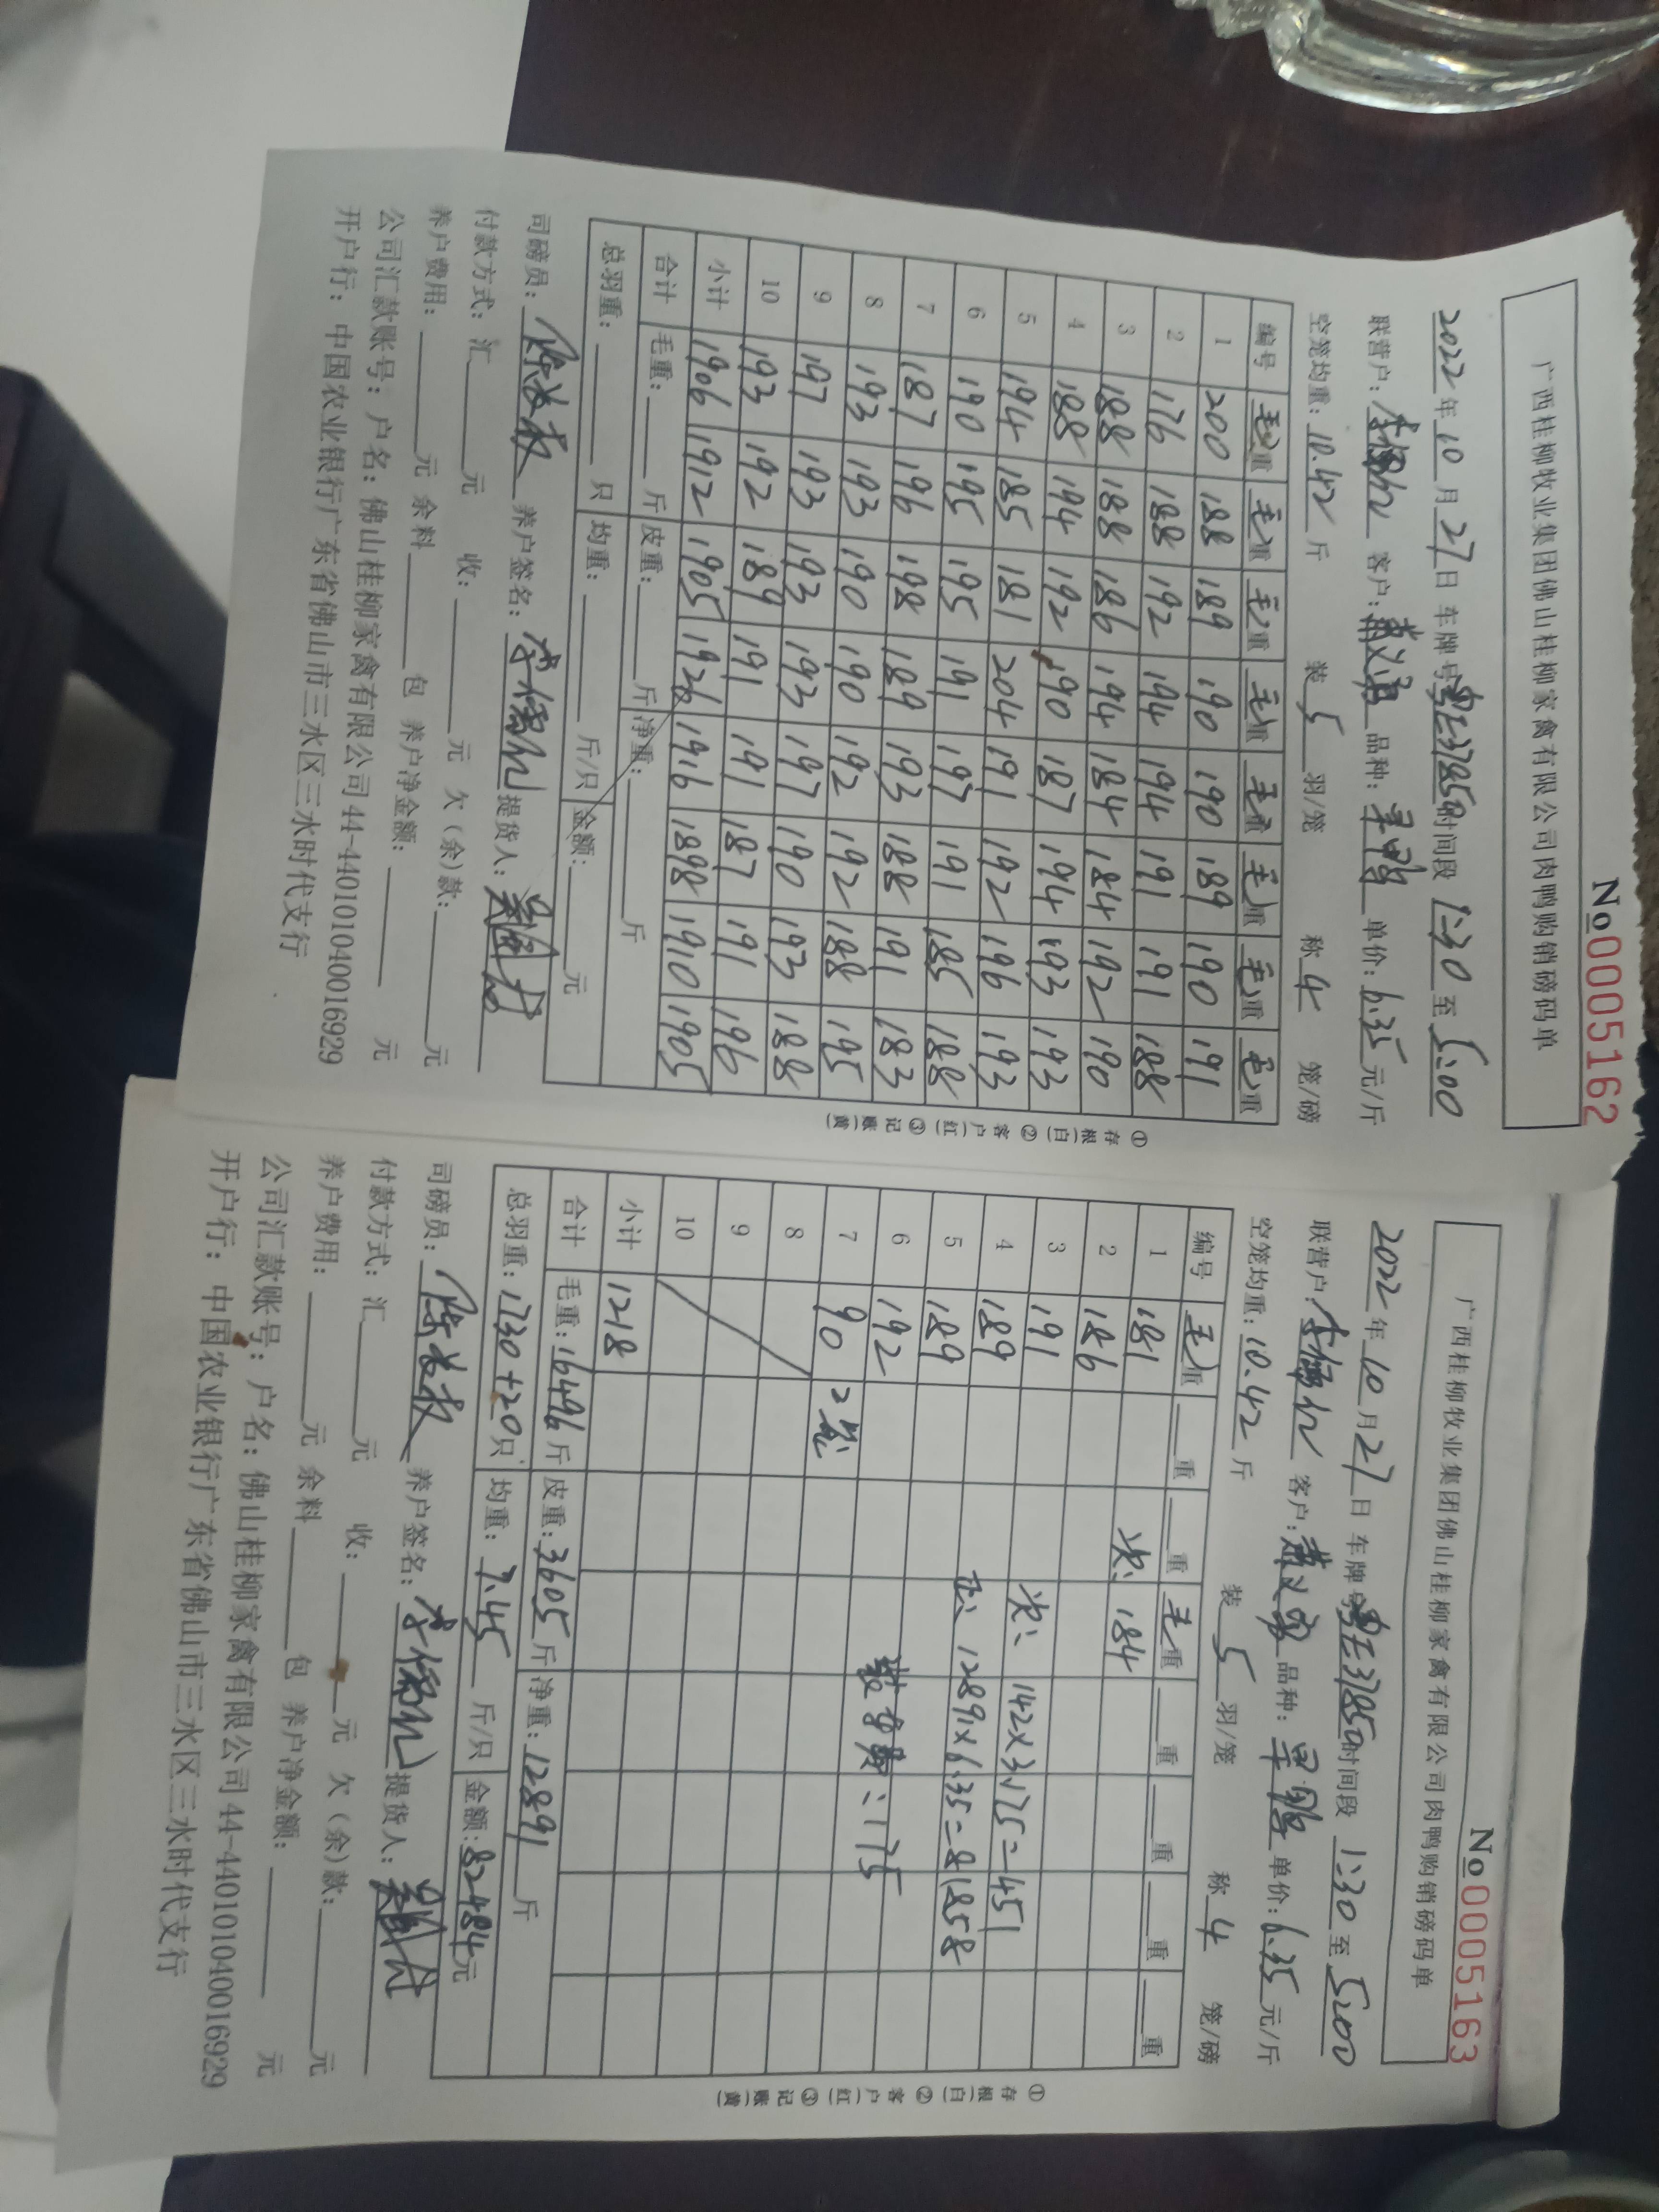 No0005162
广西桂柳牧业集团佛山桂柳家禽有限公司肉鸭购销磅码单
2022年10月27日 车牌号 时间段 1:30 至 5:00
联营户: 客户: 品种: 单价: 6.35 元/斤
空笼均重: 10.42 斤 装 5 羽/笼 称 4 笼/磅
编号 毛重 毛重 毛重 毛重 毛重 毛重 毛重 毛重
1 200 188 189 190 190 189 190 191
2 176 188 192 194 194 191 191 188
3 188 188 186 194 184 184 192 190
4 188 194 192 190 187 194 193 193
5 194 185 181 204 191 192 196 193
6 190 195 195 191 197 191 185 188
7 187 196 198 189 193 188 191 183
8 193 193 190 190 192 192 188 195
9 197 193 193 193 197 190 193 188
10 193 192 189 191 191 187 191 196
小计 1906 1912 1905 1926 1916 1898 1910 1905
合计 毛重: 斤 皮重: 斤 净重: 斤
总羽重: 只 均重: 斤/只 金额: 元
司磅员: 养户签名: 提货人:
付款方式: 汇 元 收: 元 欠(余)款: 元
养户费用: 元 余料 包 养户净金额: 元
公司汇款账号: 户名: 佛山桂柳家禽有限公司 44-440101040016929
开户行: 中国农业银行广东省佛山市三水区三水时代支行
①存根(白) ②客户(红) ③记账(黄)
No0005163
广西桂柳牧业集团佛山桂柳家禽有限公司肉鸭购销磅码单
2022年10月27日 车牌号 时间段 1:30 至 5:00
联营户: 客户: 品种: 单价: 6.35 元/斤
空笼均重: 10.42 斤 装 5 羽/笼 称 4 笼/磅
编号 毛重 重 重 毛重 重 重 重 重
1 181
2 186 次: 184
3 191
4 189 次: 142×3.175=451
5 189 正: 12891×6.35=81858
6 192
7 90 2笼 :175
8
9
10
小计 1218
合计 毛重: 16496 斤 皮重: 3605 斤 净重: 12891 斤
总羽重: 1730+20 只 均重: 7.45 斤/只 金额: 82484 元
司磅员: 养户签名: 提货人:
付款方式: 汇 元 收: 元 欠(余)款: 元
养户费用: 元 余料 包 养户净金额: 元
公司汇款账号: 户名: 佛山桂柳家禽有限公司 44-440101040016929
开户行: 中国农业银行广东省佛山市三水区三水时代支行
①存根(白) ②客户(红) ③记账(黄)